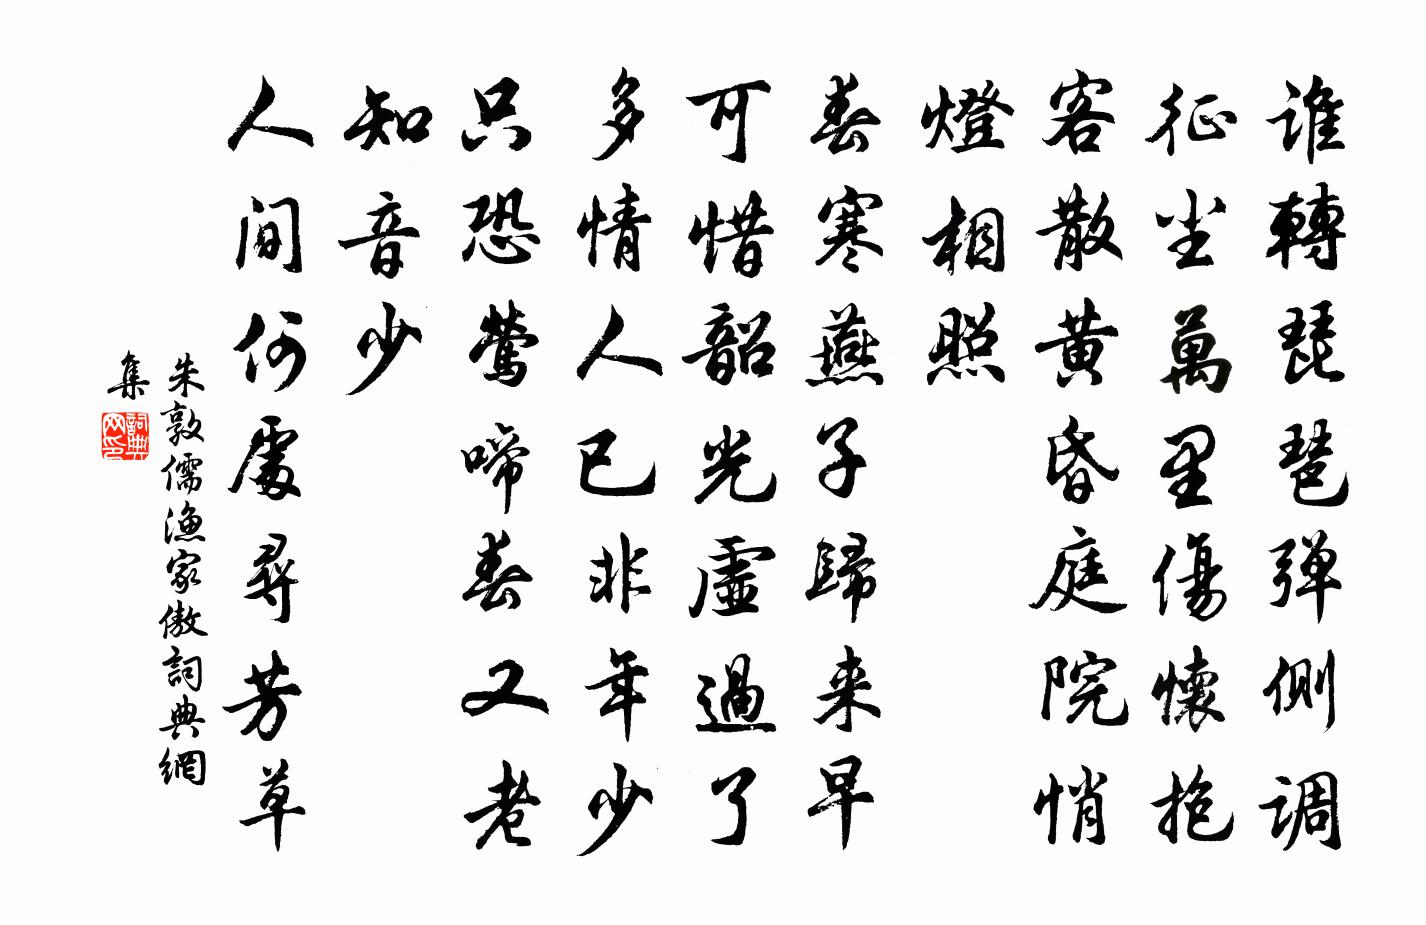 谁轉琵琶弹側调
征尘萬里傷懷抱
客散黄昏庭院悄
燈相照
春寒燕子歸来早
可惜韶光虚過了
多情人已非年少
只恐鶯啼春又老
知音少
人间何處尋芳草
朱敦儒漁家傲詞典網
集
詞典
网印